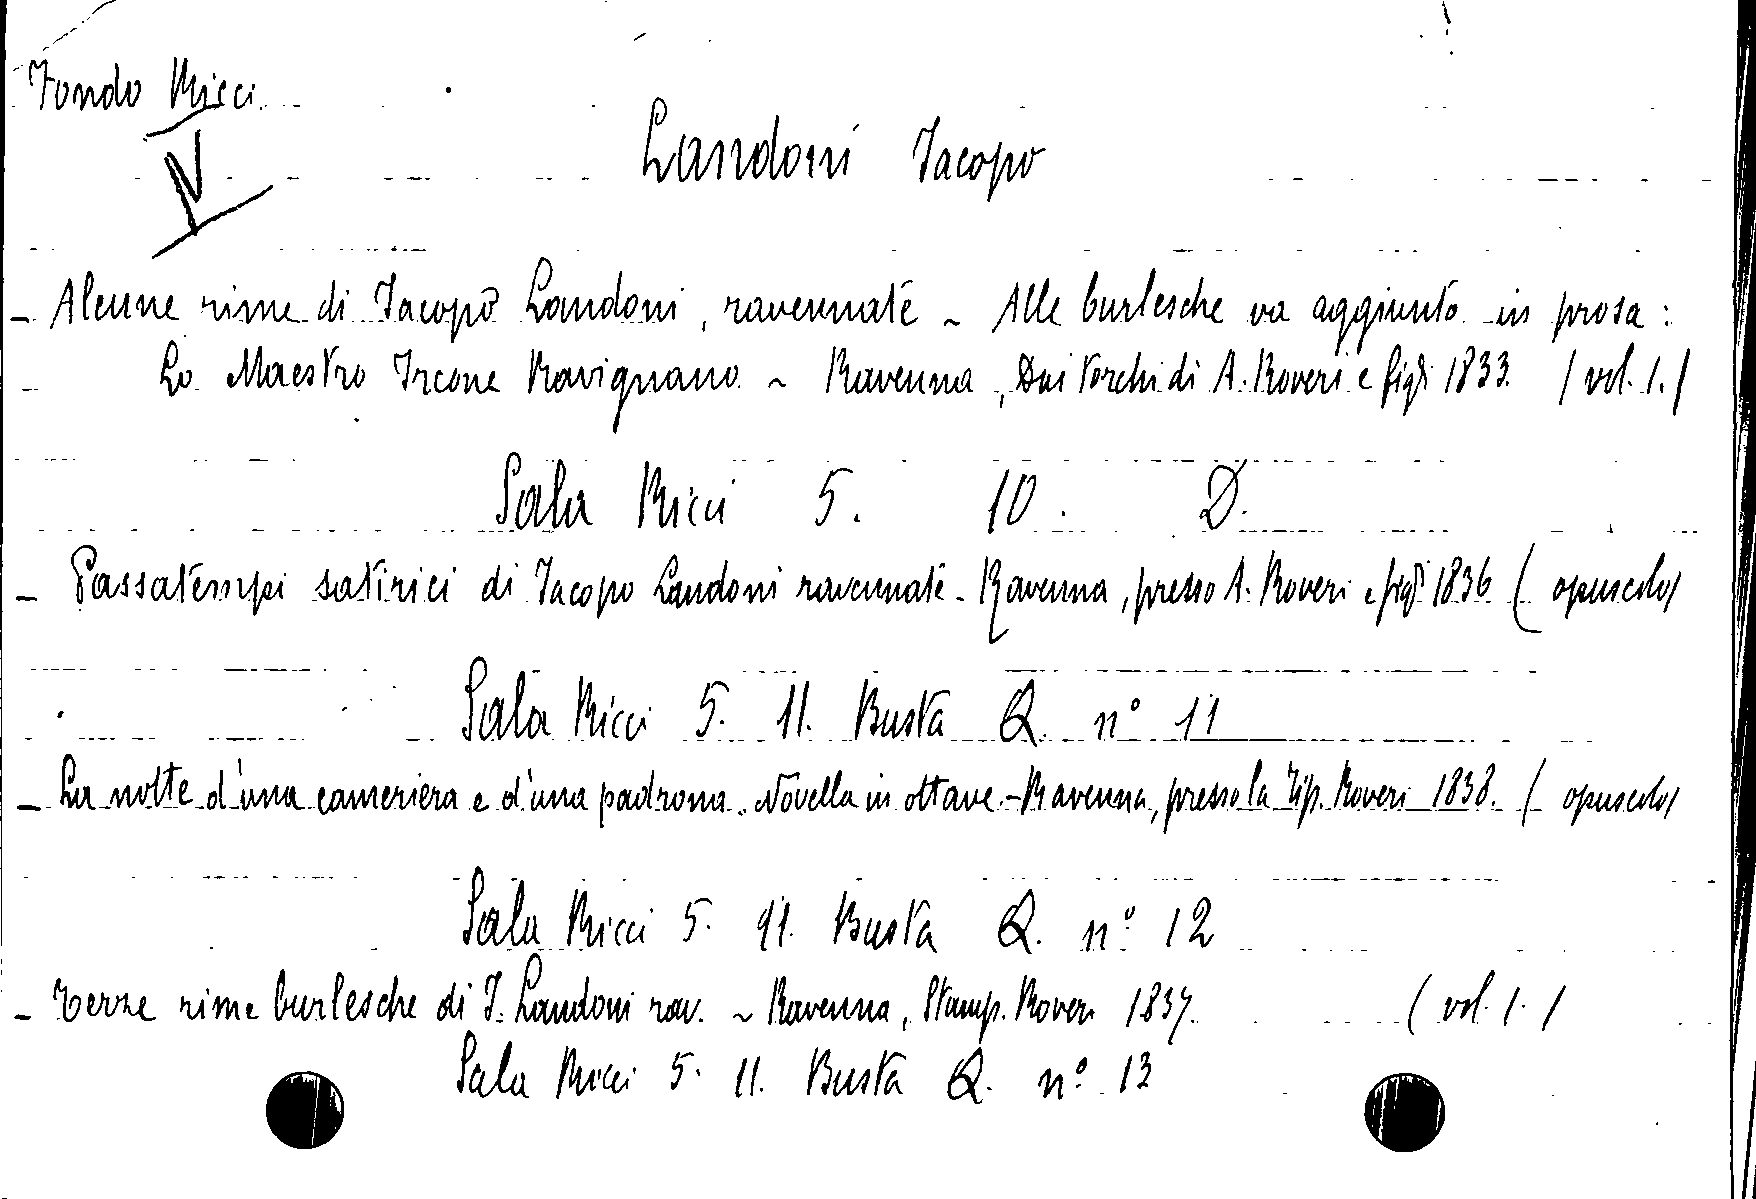 Fondo Ricci
V
Landoni Jacopo
- Alcune rime di Jacopo Landoni, ravennate - Alle burlesche va aggiunto in prosa:
Lo Maestro Ircone Ravignano - Ravenna, Dai torchi di A. Roveri e figli 1833. (vol. 1.)
Sala Ricci 5. 10. D.
- Passatempi satirici di Jacopo Landoni ravennate - Ravenna, presso A. Roveri e figli 1836 (opuscolo)
Sala Ricci 5. 11. Busta Q. n° 11
- La notte d'una cameriera e d'una padrona. Novella in ottave - Ravenna, presso la Tip. Roveri 1838. (opuscolo)
Sala Ricci 5. 11. Busta Q. n° 12
- Terze rime burlesche di J. Landoni rav. - Ravenna, Stamp. Roveri 1837. (vol. 1.)
Sala Ricci 5. 11. Busta Q. n° 13